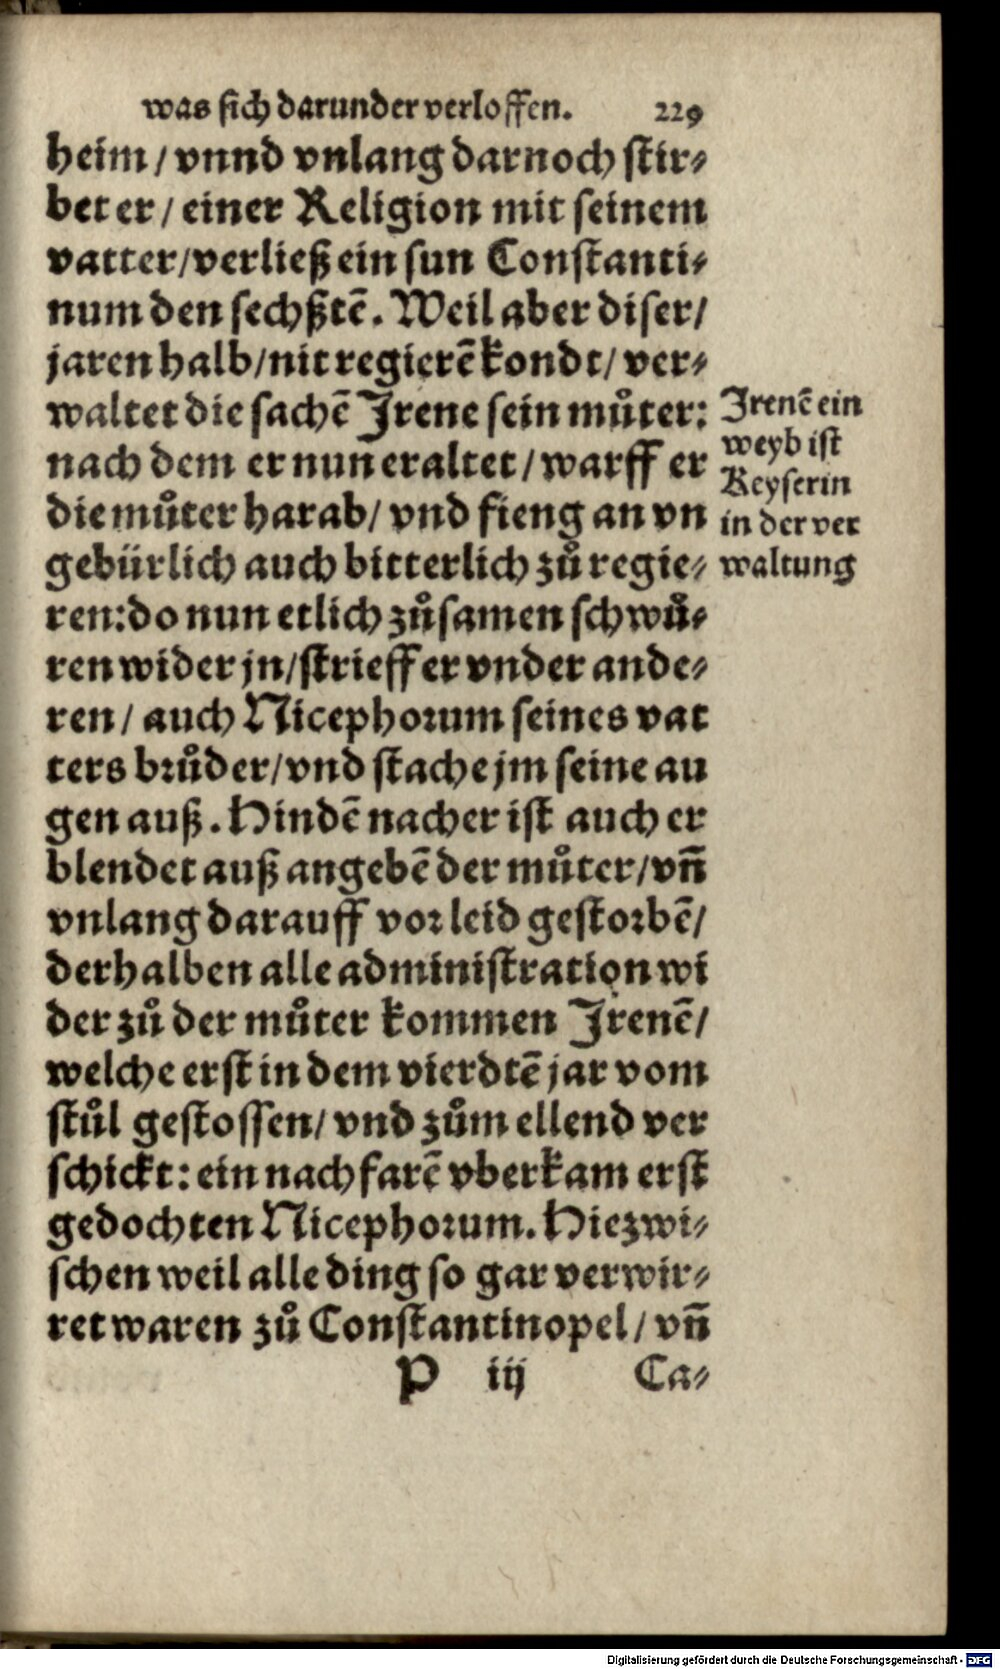 was sich darunder verloffen. 229
heim / vnnd vnlang darnoch stir⸗
bet er / einer Religion mit seinem
vatter / verließ ein sun Constanti⸗
num den sechßtẽ. Weil aber diser /
jaren halb / nit regierẽ kondt / ver⸗
waltet die sachẽ Irene sein můter:
nach dem er nun eraltet / warff er
die můter harab / vnd fieng an vn
gebürlich auch bitterlich zů regie⸗
ren: do nun etlich zůsamen schwů⸗
ren wider jn / strieff er vnder ande⸗
ren / auch Nicephorum seines vat
ters brůder / vnd stache jm seine au
gen auß. Hindẽ nacher ist auch er
blendet auß angebẽ der můter / vñ
vnlang darauff vor leid gestorbẽ /
derhalben alle administration wi
der zů der můter kommen Irenẽ /
welche erst in dem vierdtẽ jar vom
stůl gestossen / vnd zům ellend ver
schickt: ein nachfarẽ vberkam erst
gedochten Nicephorum. Hiezwi⸗
schen weil alle ding so gar verwir⸗
ret waren zů Constantinopel / vñ
P iij Ca⸗
Irenẽ ein
weyb ist
Keyserin
in der ver
waltung
Digitalisierung gefördert durch die Deutsche Forschungsgemeinschaft - DFG